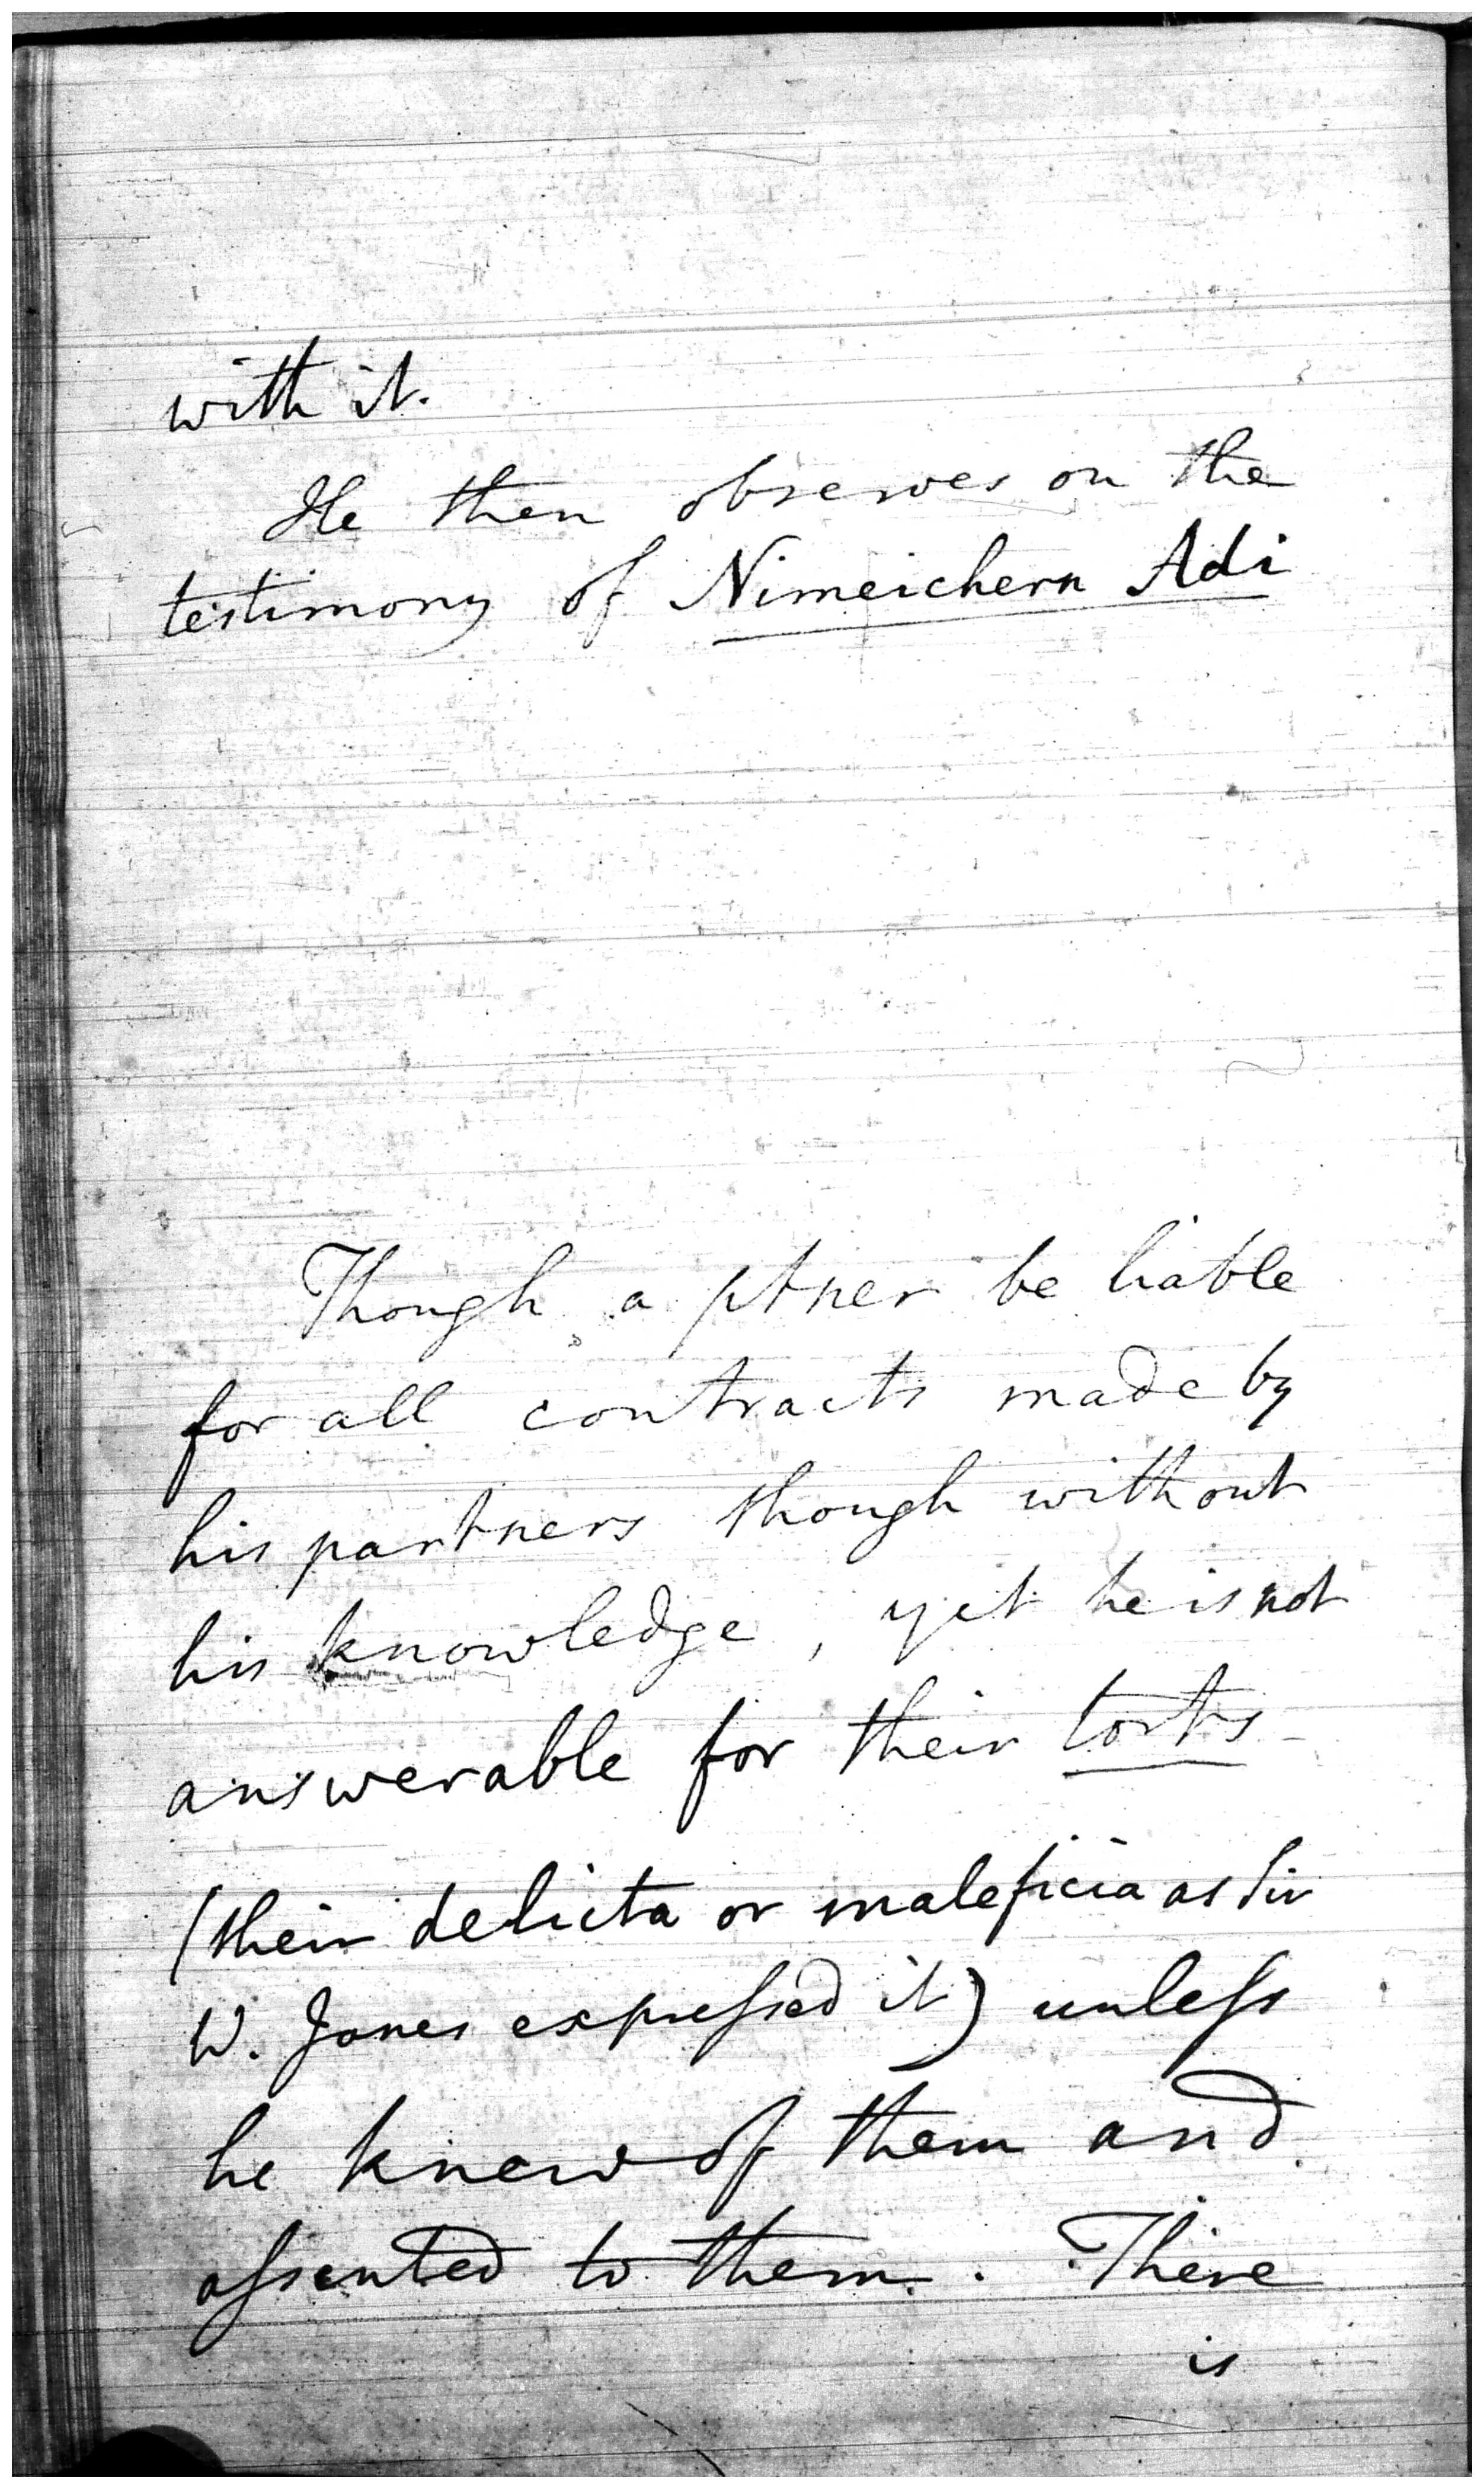 with it.
He then observes on the
testimony of Nimeichern Adi
Though a ptner be liable
for all contracts made by
his partners though without
his knowledge, yet he is not
answerable for their torts
(their delicta or maleficia as Sir
W. Jones expressed it) unless
he knew of them and
assented to them. There
is